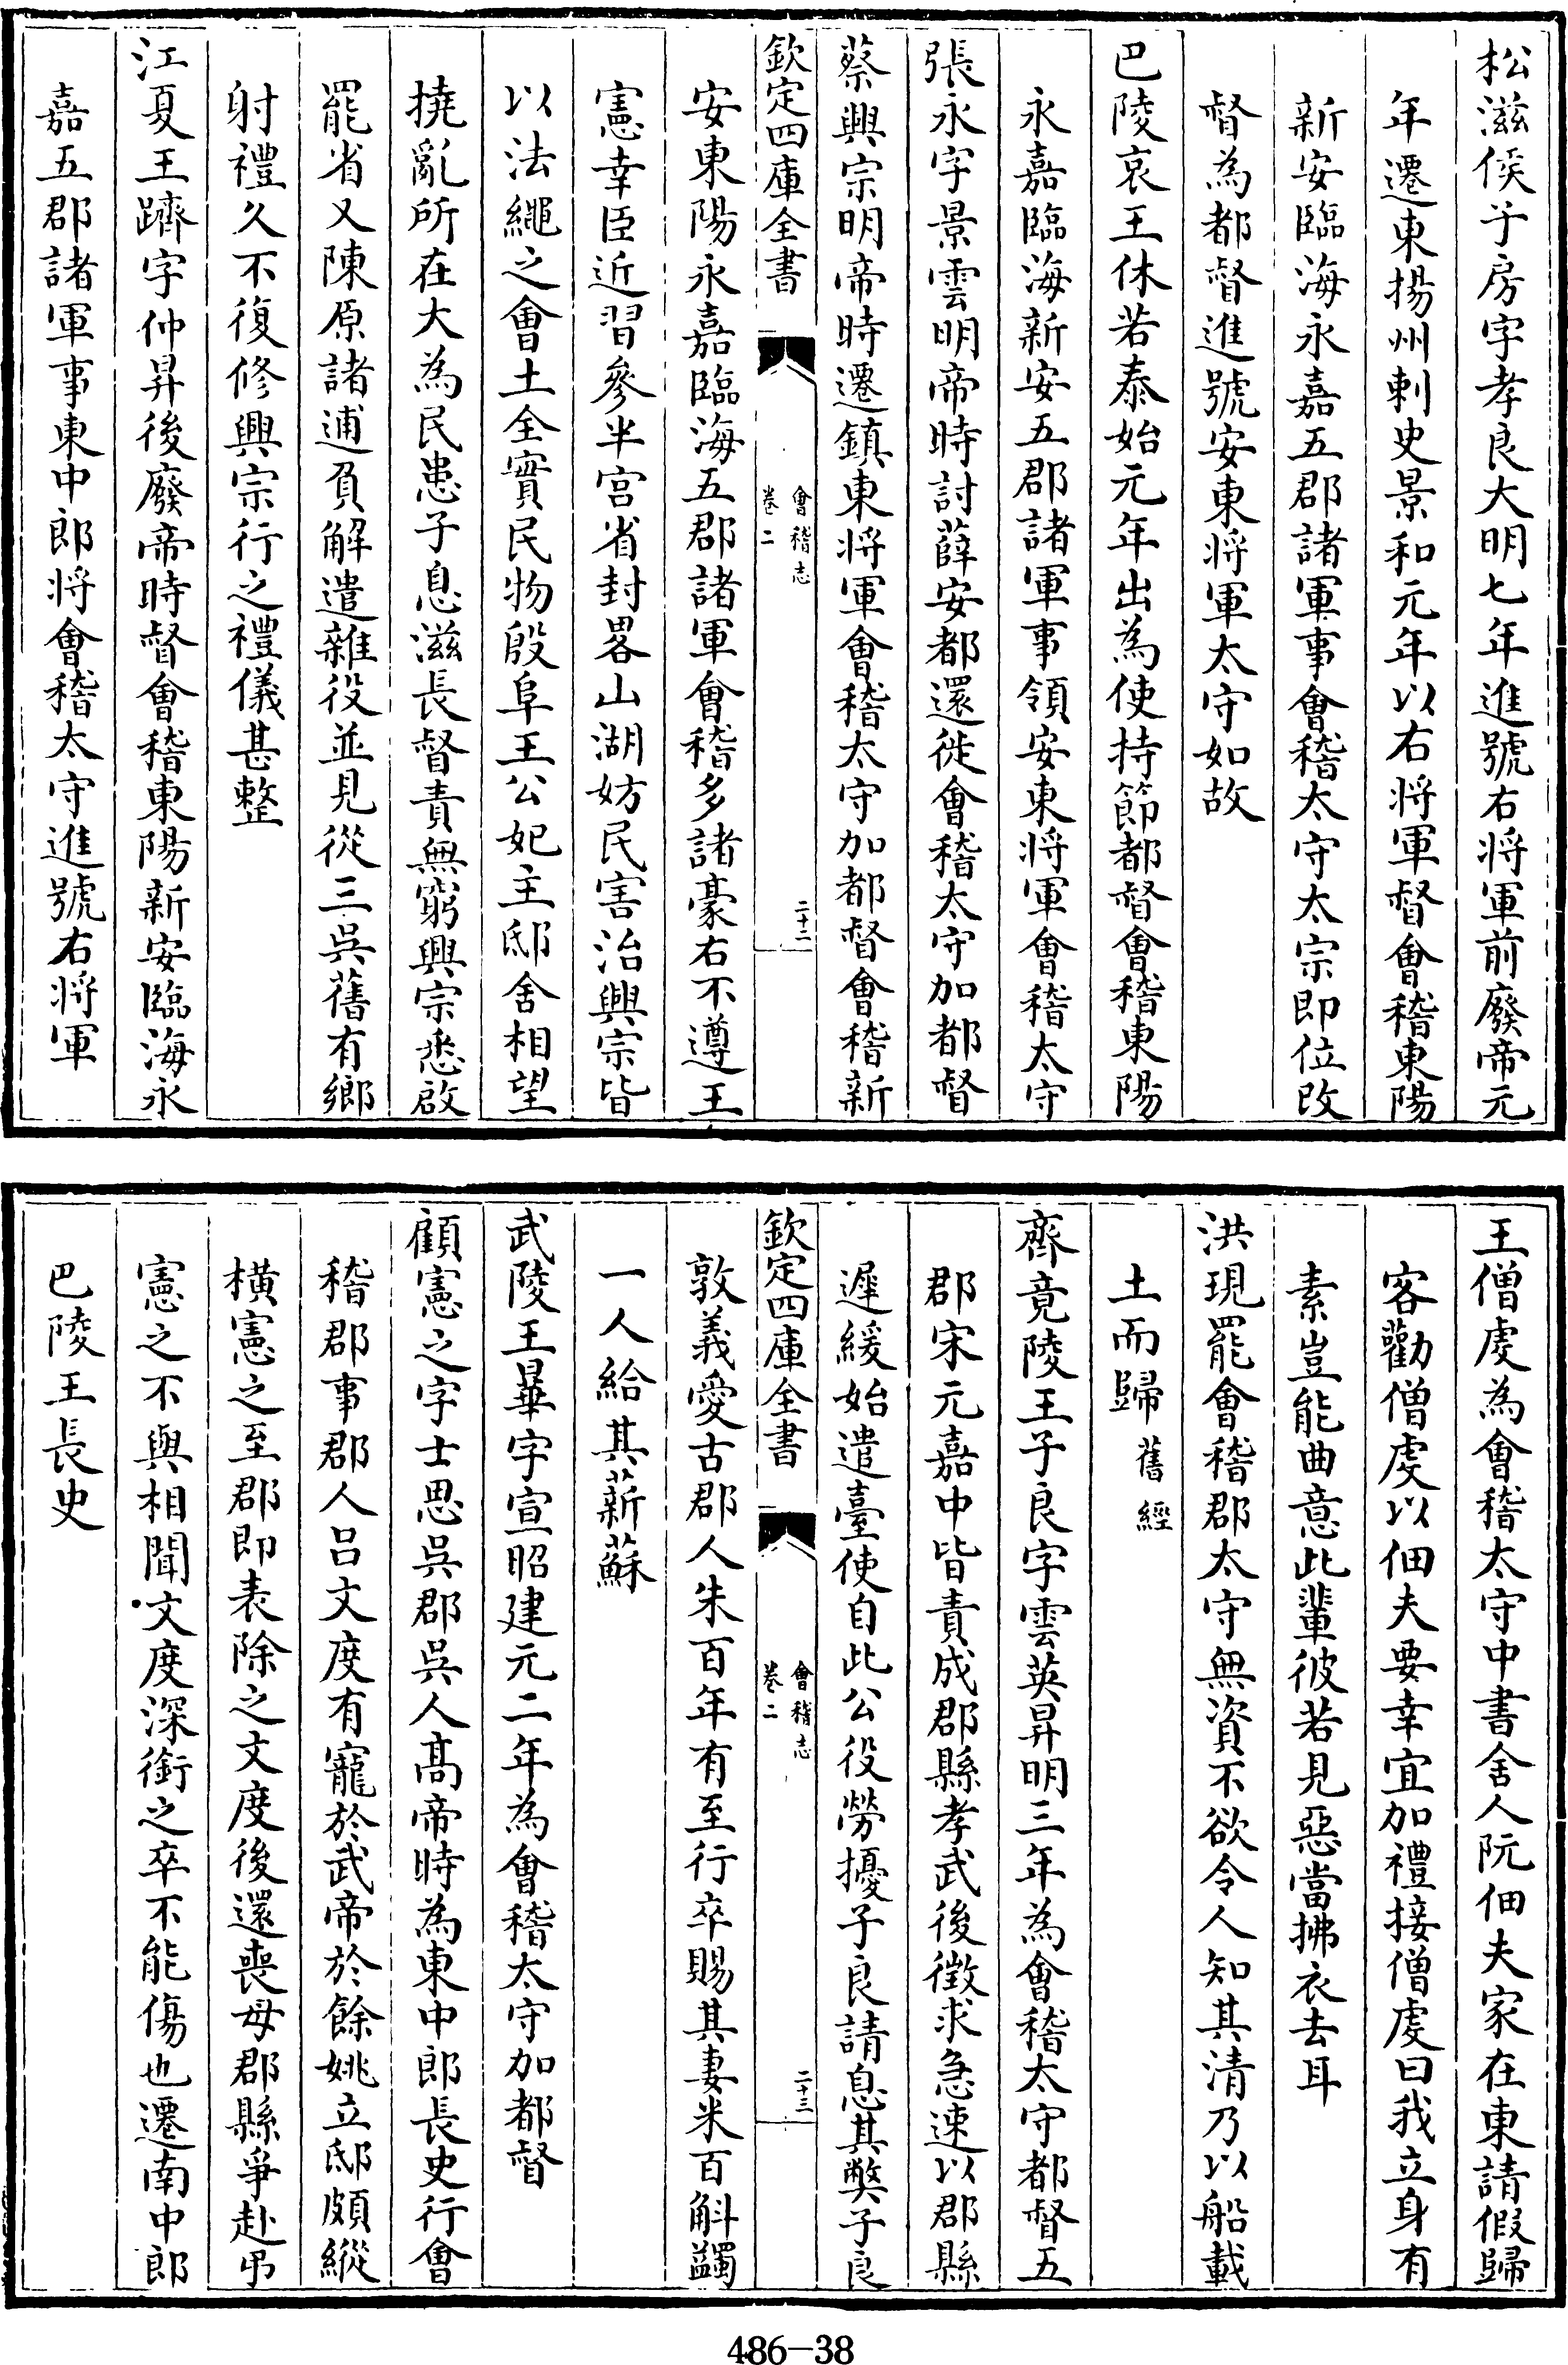 松滋侯子房字孝良大明七年進號右将軍前廢帝元
年遷東揚州刺史景和元年以右将軍督會稽東陽
新安臨海永嘉五郡諸軍事會稽太守太宗即位改
督為都督進號安東将軍太守如故
巴陵哀王休若泰始元年出為使持節都督會稽東陽
永嘉臨海新安五郡諸軍事領安東将軍會稽太守
張永字景雲明帝時討薛安都還徙會稽太守加都督
蔡興宗明帝時遷鎮東将軍會稽太守加都督會稽新
欽定四庫全書
會稽志
卷二
二十二
安東陽永嘉臨海五郡諸軍會稽多諸豪右不遵王
憲幸臣近習參半宫省封畧山湖妨民害治興宗皆
以法繩之會土全實民物殷阜王公妃主邸舍相望
撓亂所在大為民患子息滋長督責無窮興宗悉啟
罷省又陳原諸逋負解遣雜役並見從三吳舊有鄉
射禮久不復修興宗行之禮儀甚整
江夏王躋字仲昇後廢帝時督會稽東陽新安臨海永
嘉五郡諸軍事東中郎将會稽太守進號右将軍
王僧虔為會稽太守中書舍人阮佃夫家在東請假歸
客勸僧虔以佃夫要幸宜加禮接僧虔曰我立身有
素豈能曲意此輩彼若見惡當拂衣去耳
洪現罷會稽郡太守無資不欲令人知其清乃以船載
土而歸舊經
齊竟陵王子良字雲英昇明三年為會稽太守都督五
郡宋元嘉中皆責成郡縣孝武後徵求急速以郡縣
遲緩始遣臺使自此公役勞擾子良請息其弊子良
欽定四庫全書
會稽志
卷二
二十三
敦義愛古郡人朱百年有至行卒賜其妻米百斛蠲
一人給其薪蘇
武陵王曅字宣昭建元二年為會稽太守加都督
顧憲之字士思吳郡吳人髙帝時為東中郎長史行會
稽郡事郡人吕文度有寵於武帝於餘姚立邸頗縱
橫憲之至郡即表除之文度後還喪母郡縣爭赴弔
憲之不與相聞文度深銜之卒不能傷也遷南中郎
巴陵王長史
486-38